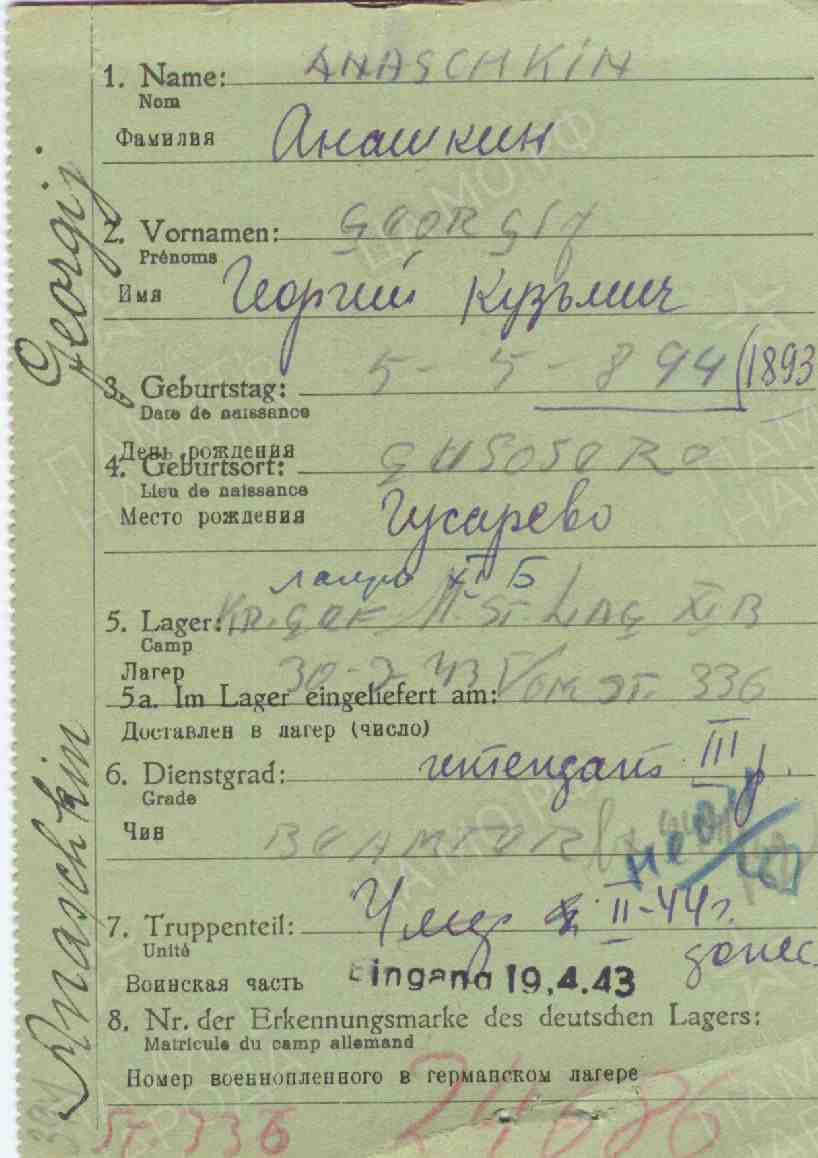 1. Name: ANASCHKIN
Nom
Фамилия Анашкин
2. Vornamen: GEORGIJ
Prénoms
Имя Георгий Кузьмич
3. Geburtstag: 5-5-894 (1893
Date de naissance
День рождения
4. Geburtsort:
Lieu de naissance
Место рождения Гусарево
XI Б
5. Lager: KR. GEF. M. ST. LAG XI B
Camp
Лагер
5a. Im Lager eingeliefert am: VOM ST. 336
Доставлен в лагер (число)
6. Dienstgrad: интендант III р.
Grade
Чин
7. Truppenteil: Умер II-44г.
Unité
Воинская часть Eingang 19.4.43 донес
8. Nr. der Erkennungsmarke des deutschen Lagers:
Matricule du camp allemand
Номер военнопленного в германском лагере
St 336 24686
Anaschkin Georgij